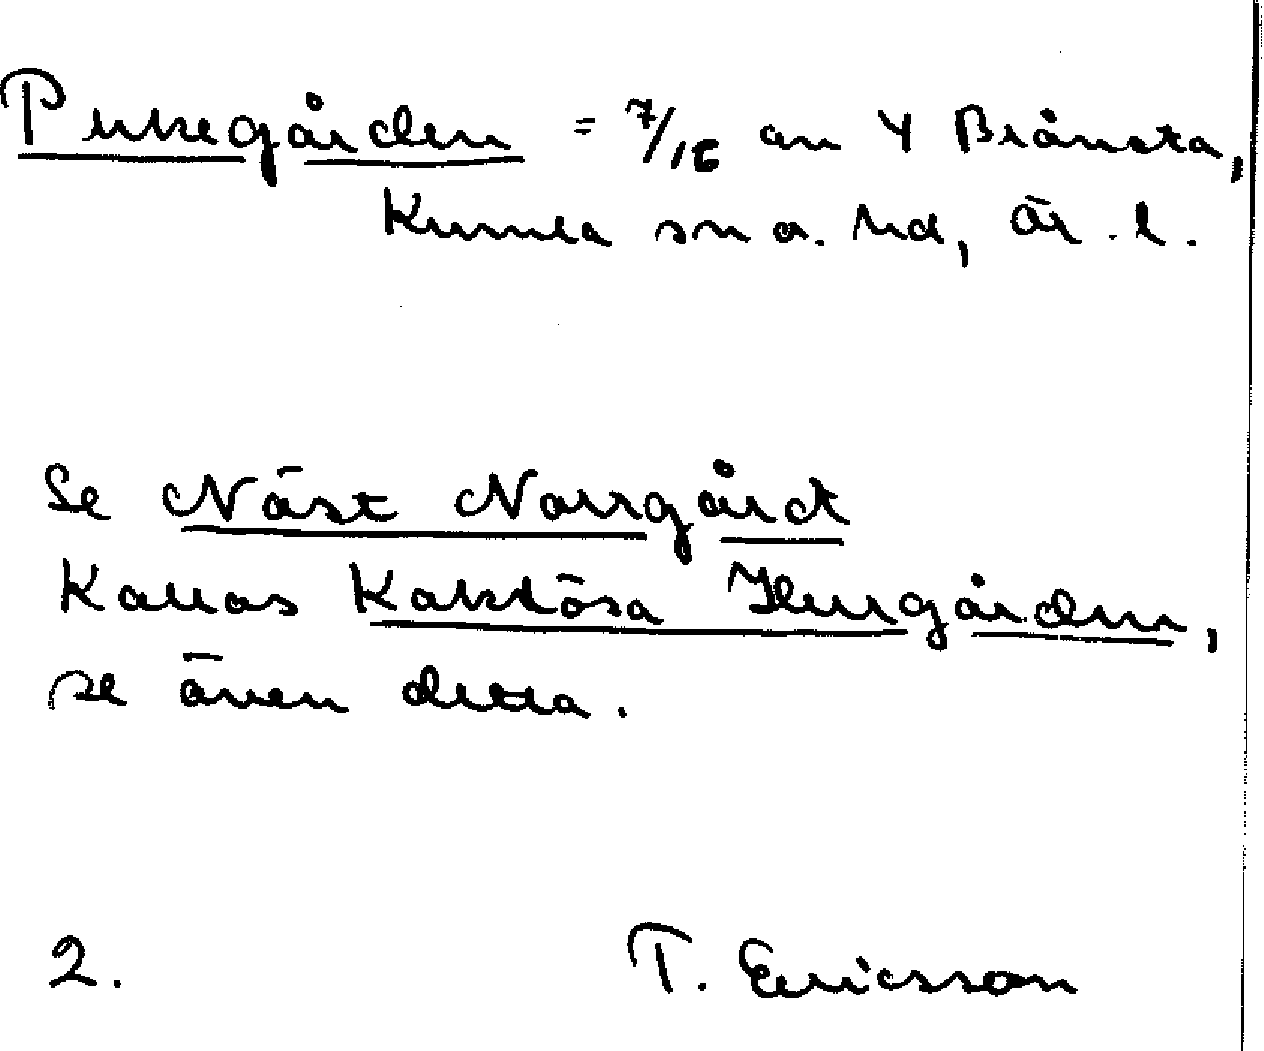 Pukegården = 7/16 av Y Brånsta,
Kumla sn o. hd, Är. l.
Se Näst Norrgård
Kallas Kalvlösa Hurgården,
se även detta.
2. T. Ericsson